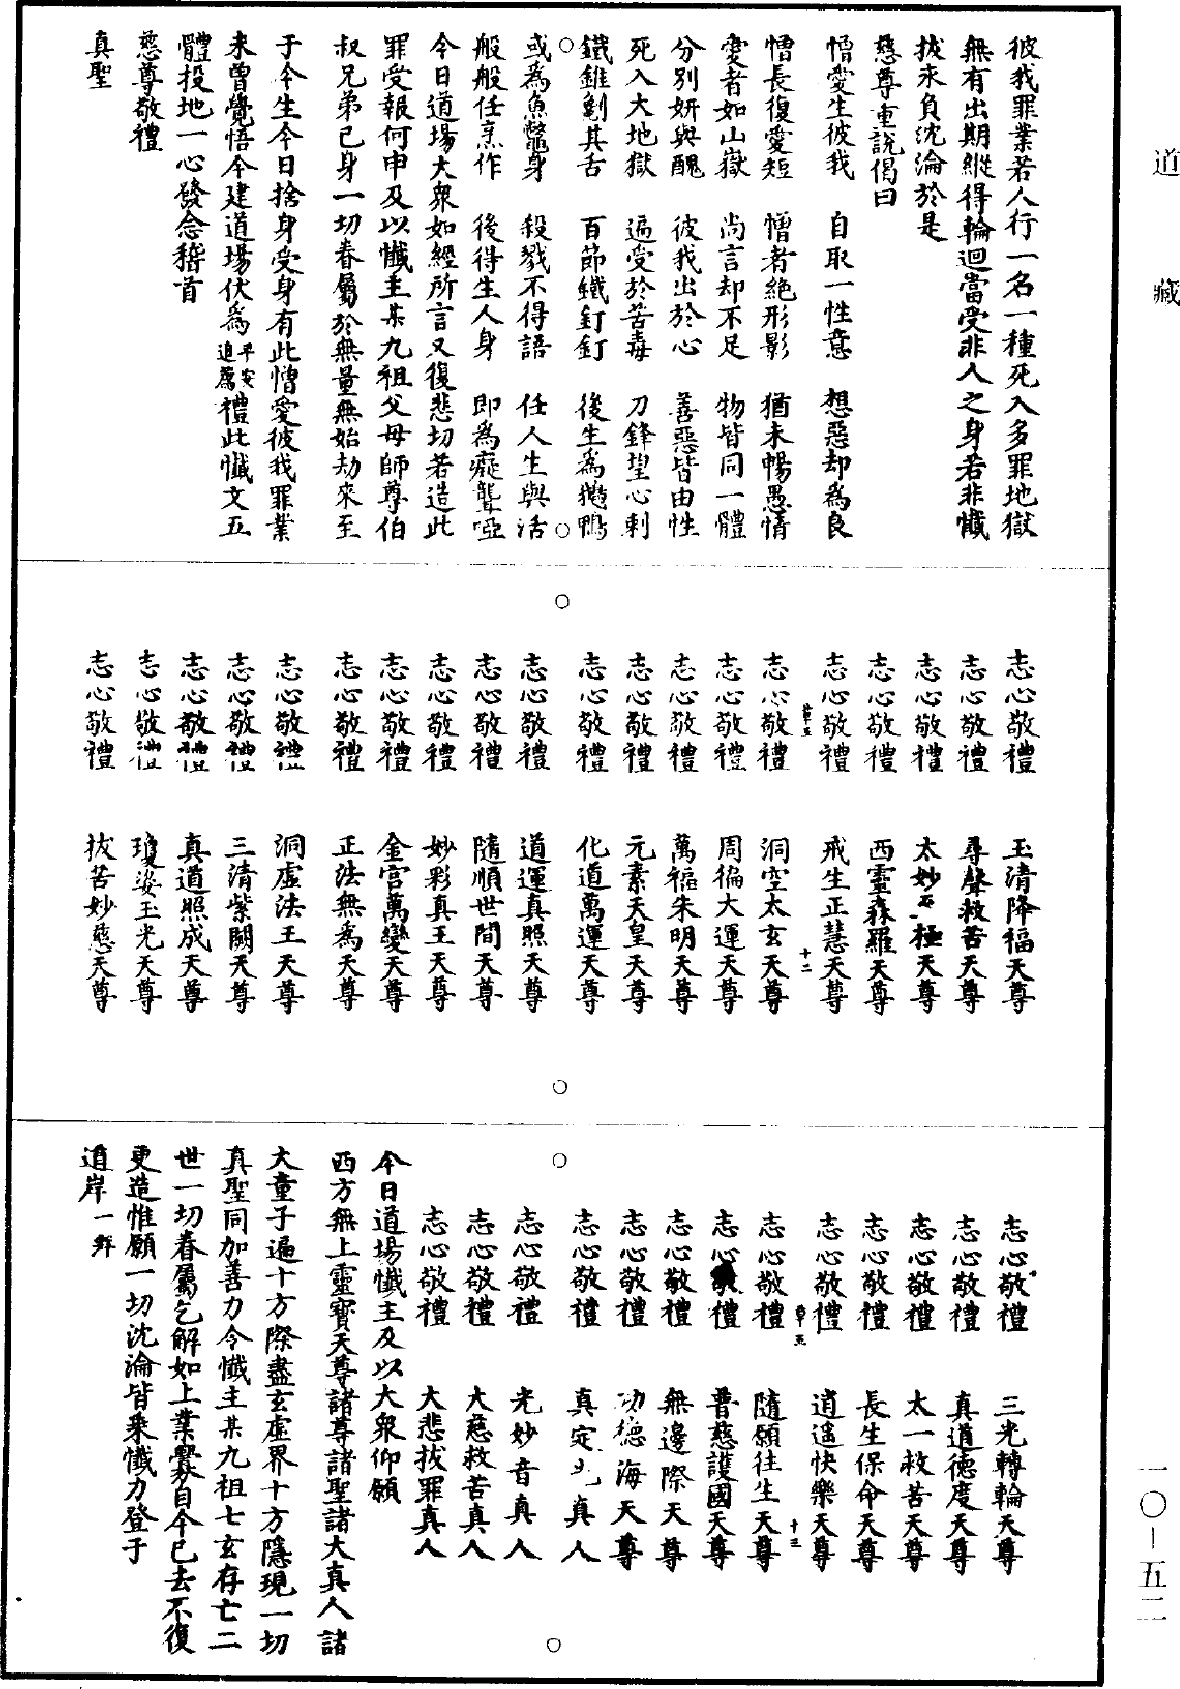 道藏
彼我罪業若人行一名一種死入多罪地獄
無有出期縱得輪迴當受非人之身若非懺
拔永負沈淪於是
慈尊重說偈曰
憎愛生彼我　自取一性意　想惡却為良
憎長復愛短　憎者絕形影　猶未暢愚情
愛者如山嶽　尚言却不足　物皆同一體
分別妍與醜　彼我出於心　善惡皆由性
死入大地獄　逼受於苦毒　刀鋒望心刺
鐵錐劖其舌　百節鐵釘釘　後生為鵝鴨
或為魚鼈身　殺戮不得語　任人生與活
般般任烹作　後得生人身　即為癡聾啞
今日道場大衆如經所言又復悲切若造此
罪受報何申及以懺主某九祖父母師尊伯
叔兄弟已身一切眷屬於無量無始劫來至
于今生今日捨身受身有此憎愛彼我罪業
未曾覺悟今建道場伏為平安追薦禮此懺文五
體投地一心發念稽首
慈尊敬禮
真聖
志心敬禮　玉清降福天尊
志心敬禮　尋聲救苦天尊
志心敬禮　太妙無極天尊
志心敬禮　西靈森羅天尊
志心敬禮　戒生正慧天尊
草五　十二
志心敬禮　洞空太玄天尊
志心敬禮　周徧大運天尊
志心敬禮　萬福朱明天尊
志心敬禮　元素天皇天尊
志心敬禮　化道萬運天尊
志心敬禮　道運真照天尊
志心敬禮　隨順世間天尊
志心敬禮　妙彩真王天尊
志心敬禮　金宮萬變天尊
志心敬禮　正法無為天尊
志心敬禮　洞虛法王天尊
志心敬禮　三清紫闕天尊
志心敬禮　真道照成天尊
志心敬禮　瓊姿玉光天尊
志心敬禮　拔苦妙慈天尊
志心敬禮　三光轉輪天尊
志心敬禮　真道德度天尊
志心敬禮　太一救苦天尊
志心敬禮　長生保命天尊
志心敬禮　逍遥快樂天尊
草五　十三
志心敬禮　隨願往生天尊
志心敬禮　普慈護國天尊
志心敬禮　無邊際天尊
志心敬禮　功德海天尊
志心敬禮　真定光真人
志心敬禮　光妙音真人
志心敬禮　大慈救苦真人
志心敬禮　大悲拔罪真人
今日道場懺主及以大衆仰願
西方無上靈寶天尊諸尊諸聖諸大真人諸
大童子遍十方際盡玄虛界十方隱現一切
真聖同加善力令懺主某九祖七玄存亡二
世一切眷屬乞解如上業釁自今已去不復
更造惟願一切沈淪皆乘懺力登于
道岸一拜
一〇—五二